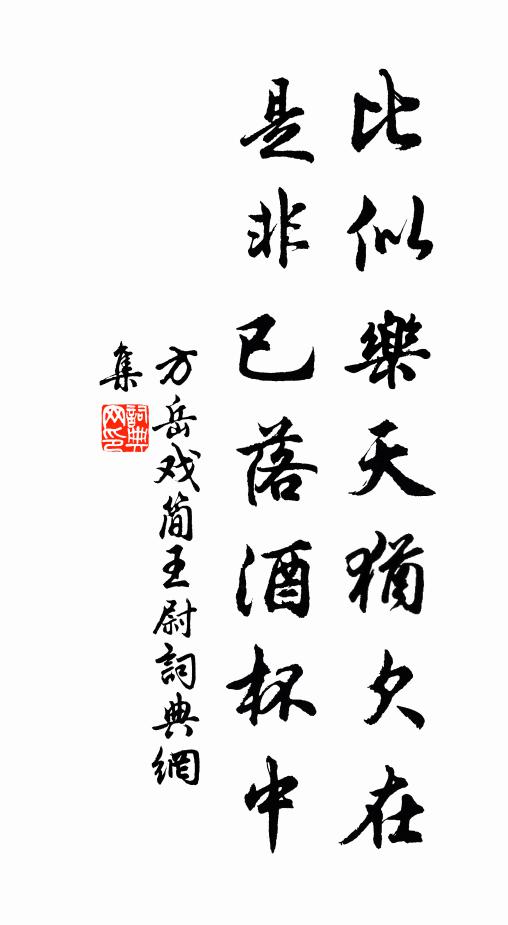 比似樂天猶欠在
是非已落酒杯中
方岳戏简王尉詞典網
集
詞典
网印